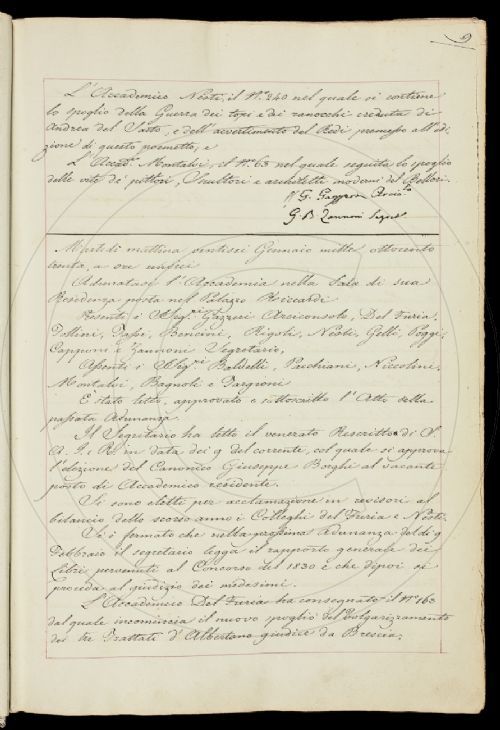 9
L'Accademico Nesti, il N.° 240 nel quale si contiene
lo spoglio della Guerra dei topi e dei ranocchi creduta di
Andrea del Sarto, e dell'avvertimento del Redi premesso all'edi=
zione di questo poemetto, e
L'Accad.° Montalvi, il N.° 63 nel quale seguita lo spoglio
delle vite de' pittori, Scultori e architetti moderni del Bellori.
G. Gazzeri Arcic.°
G B Zannoni Segret
Martedì mattina ventisei Gennaio mille ottocento
trenta, a ore undici
Adunatasi l'Accademia nella Sala di sua
Residenza posta nel Palazzo Riccardi
Presenti i Sigg.ri Gazzeri Arciconsolo, Del Furia,
Follini, Bencini, Rigoli, Nesti, Gelli, Poggi,
Capponi e Zannoni Segretario,
Assenti i Sigg.ri Baldelli, Pacchiani, Niccolini,
Montalvi, Bagnoli e Targioni
È stato letto, approvato e sottoscritto l'Atto della
passata Adunanza.
Il Segretario ha letto il venerato Rescritto di S.
A. I. e R. in data dei 9 del corrente, col quale si approva
l'elezione del Canonico Giuseppe Borghi al vacante
posto di Accademico residente.
Si sono eletti per acclamazione in revisori al
bilancio dello scorso anno i Colleghi del Furia e Nesti.
Si è fermato che nella prossima Adunanza del dì 9
Febbraio il segretario legga il rapporto generale dei
Libri pervenuti al Concorso del 1830 e che dipoi si
proceda al giudizio dei medesimi.
L'Accademico Del Furia ha consegnato il N.° 163
dal quale incomincia il nuovo spoglio del Volgarizzamento
dei tre Trattati d'Albertano giudice da Brescia;